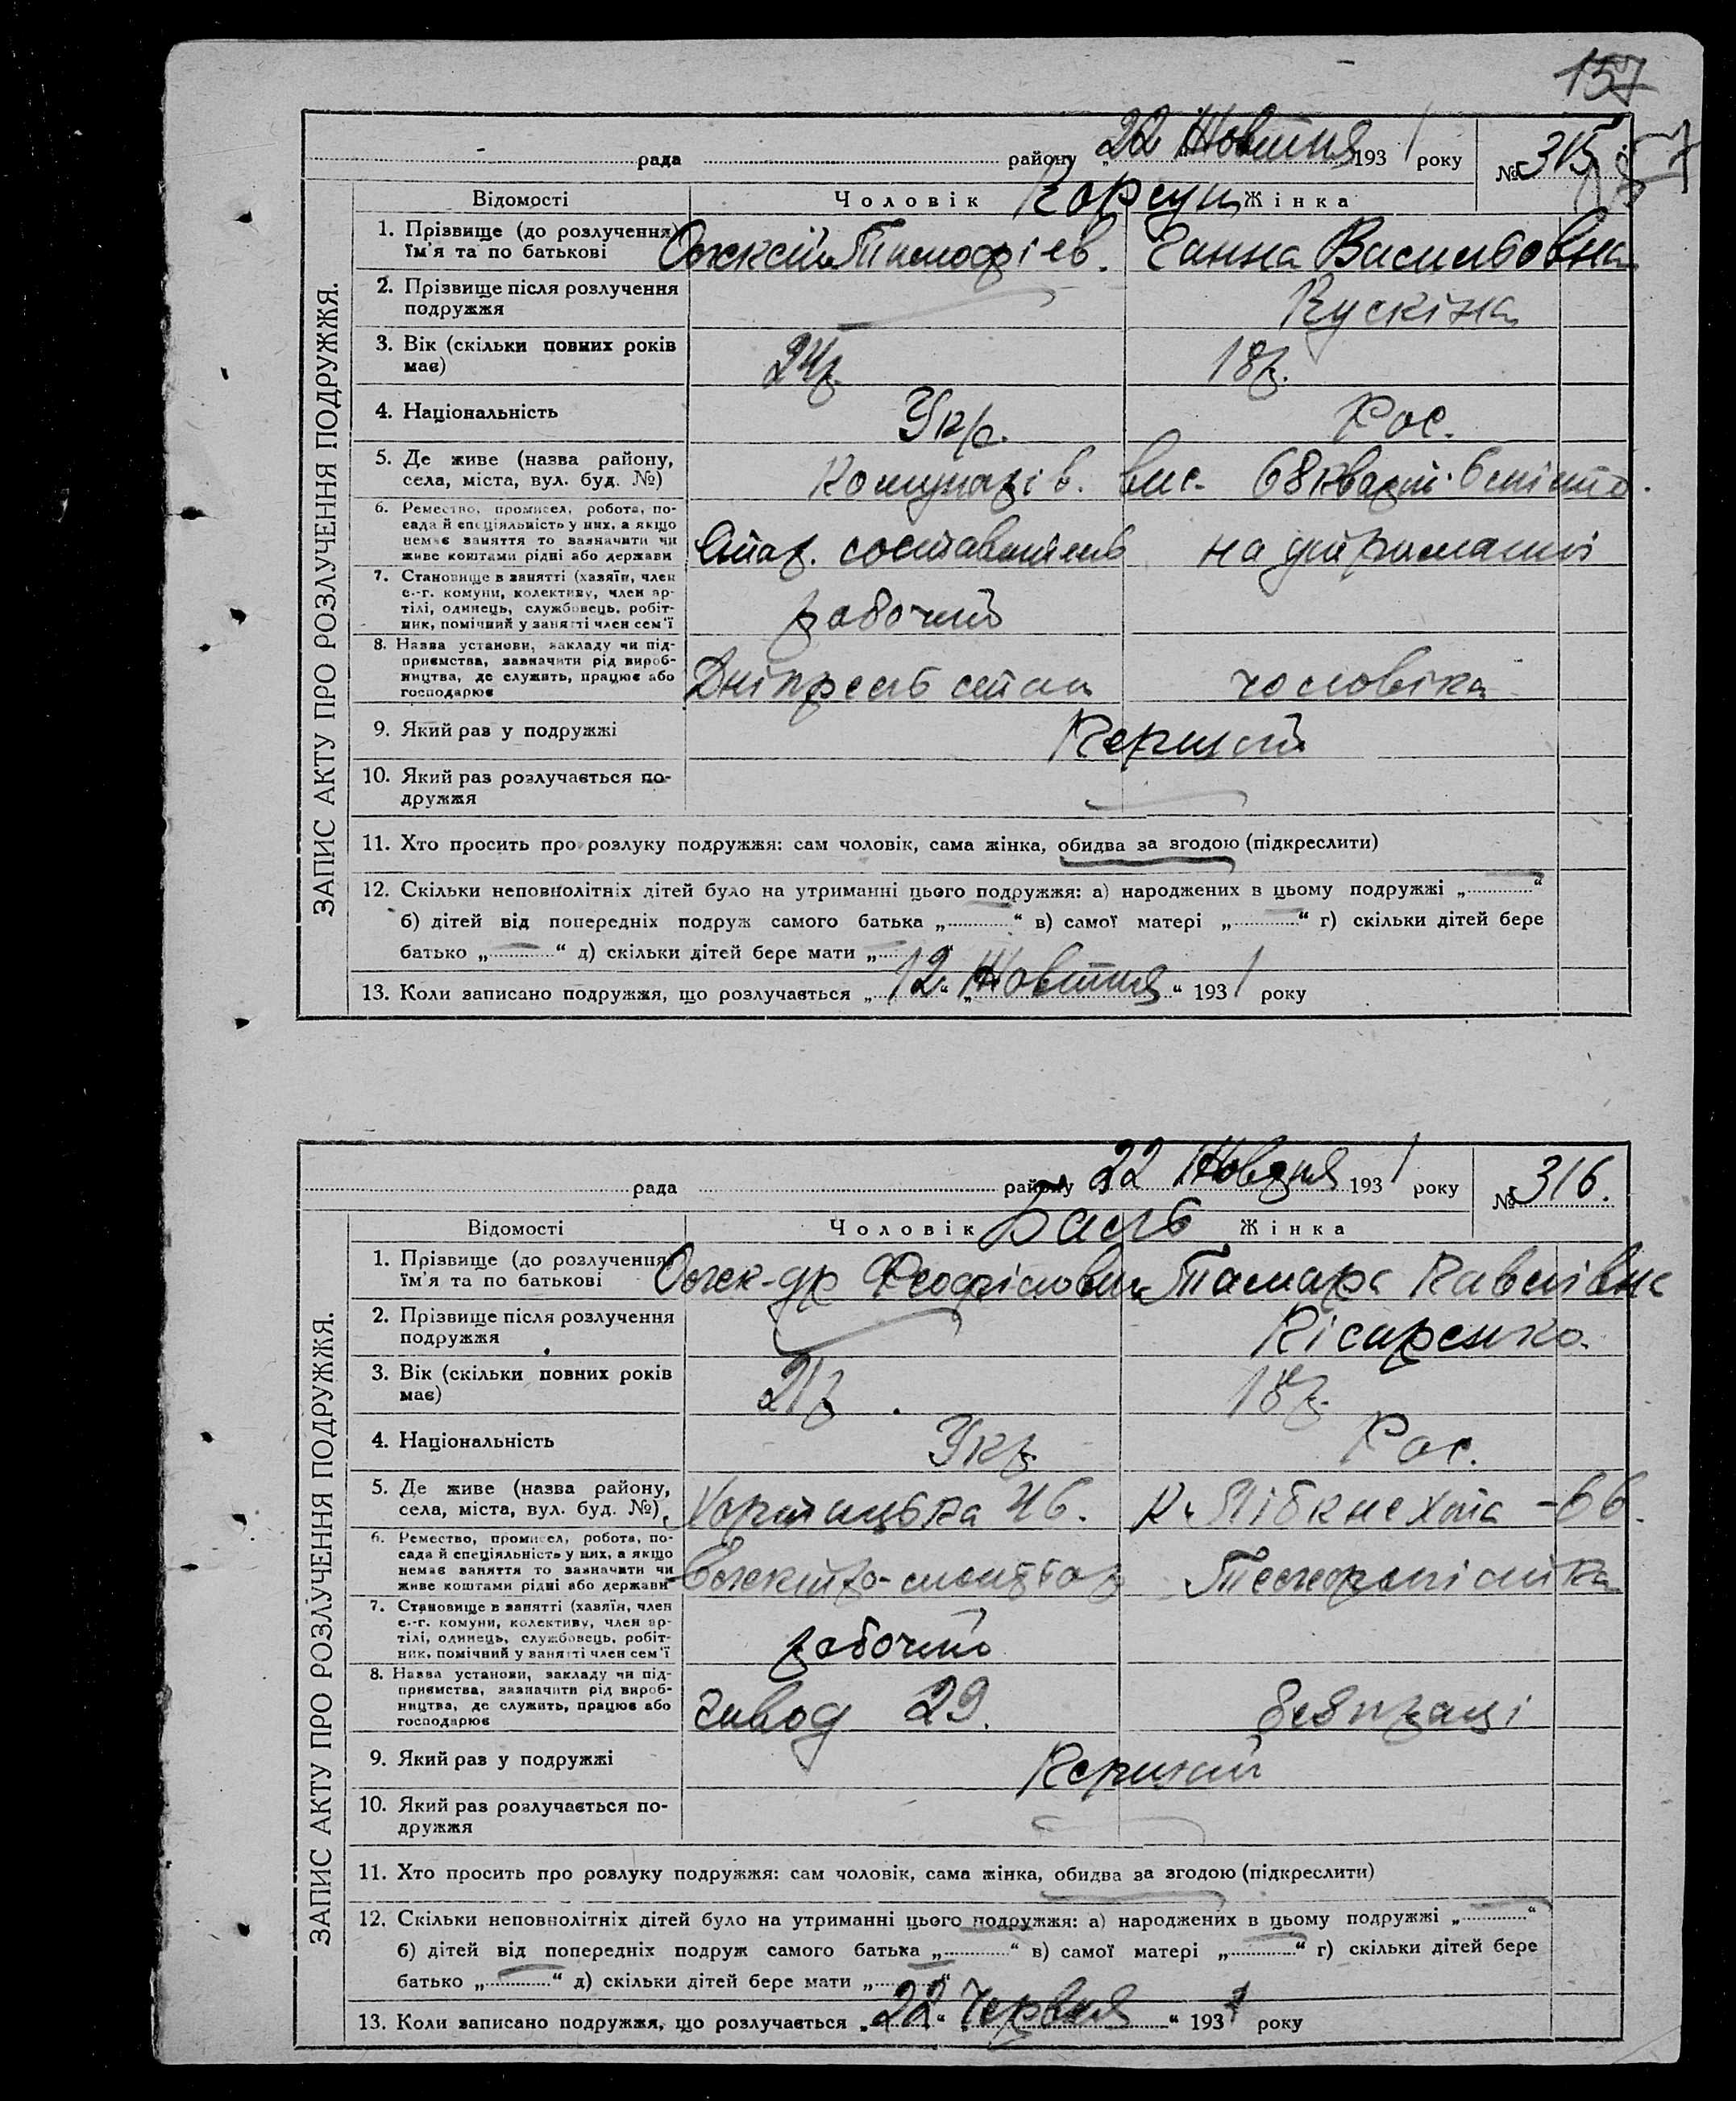 157
рада району 22 Жовтня 1931 року № 315
Відомості Чоловік Корсун Жінка
ЗАПИС АКТУ ПРО РОЗЛУЧЕННЯ ПОДРУЖЖЯ.
1. Прізвище (до розлучення)
ім'я та по батькові Олексій Тимофієв. Ганна Васильовна
2. Прізвище після розлучення
подружжя Кускіна
3. Вік (скільки повних років
має) 24р. 18р.
4. Національність Укр. Рос.
5. Де живе (назва району,
села, міста, вул. буд. №) вис. 68 6
6. Ремество, промисел, робота, по-
сада й спеціяльність у них, а якщо
немає заняття то зазначити чи
живе коштами рідні або держави составитель на утриманні
7. Становище в занятті (хазяїн, член
с.-г. комуни, колективу, член ар-
тілі, одинець, службовець, робіт-
ник, помічний у занятті член сем'ї рабочий
8. Назва установи, закладу чи під-
приємства, зазначити рід вироб-
ництва, де служить, працює або
господарює чоловіка
9. Який раз у подружжі Перший
10. Який раз розлучається по-
дружжя
11. Хто просить про розлуку подружжя: сам чоловік, сама жінка, обидва за згодою (підкреслити)
12. Скільки неповнолітніх дітей було на утриманні цього подружжя: а) народжених в цьому подружжі „ “
б) дітей від попередніх подруж самого батька „ “ в) самої матері „ “ г) скільки дітей бере
батько „ “ д) скільки дітей бере мати „ “
13. Коли записано подружжя, що розлучається „ 12 “ „ Жовтня “ 1931 року
рада району 22 Жовтня 1931 року № 316.
Відомості Чоловік Баль Жінка
ЗАПИС АКТУ ПРО РОЗЛУЧЕННЯ ПОДРУЖЖЯ.
1. Прізвище (до розлучення)
ім'я та по батькові Олек-др Феофілович Тамара Павлівна
2. Прізвище після розлучення
подружжя Пісаренко.
3. Вік (скільки повних років
має) 21р. 18р.
4. Національність Укр. Рос.
5. Де живе (назва району,
села, міста, вул. буд. №) Хортицька 46. К. Лібкнехта - 66.
6. Ремество, промисел, робота, по-
сада й спеціяльність у них, а якщо
немає заняття то зазначити чи
живе коштами рідні або держави Електро-монтьор Телефоністка
7. Становище в занятті (хазяїн, член
с.-г. комуни, колективу, член ар-
тілі, одинець, службовець, робіт-
ник, помічний у занятті член сем'ї рабочий
8. Назва установи, закладу чи під-
приємства, зазначити рід вироб-
ництва, де служить, працює або
господарює завод 29. безпраці
9. Який раз у подружжі Перший
10. Який раз розлучається по-
дружжя
11. Хто просить про розлуку подружжя: сам чоловік, сама жінка, обидва за згодою (підкреслити)
12. Скільки неповнолітніх дітей було на утриманні цього подружжя: а) народжених в цьому подружжі „ “
б) дітей від попередніх подруж самого батька „ “ в) самої матері „ “ г) скільки дітей бере
батько „ “ д) скільки дітей бере мати „ “
13. Коли записано подружжя, що розлучається „ 22 “ Червня “ 1931 року